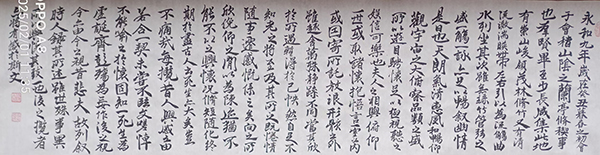 永和九年歲在癸丑暮春之初會
于會稽山陰之蘭亭修禊事
也羣賢畢至少長咸集此地
有崇山峻領茂林修竹又有清
流激湍暎帶左右引以為流觴曲
水列坐其次雖無絲竹管弦之
盛一觴一詠亦足以暢敘幽情
是日也天朗氣清惠風和暢仰
觀宇宙之大俯察品類之盛
所以遊目騁懷足以極視聽之
娛信可樂也夫人之相與俯仰
一世或取諸懷抱悟言一室之內
或因寄所託放浪形骸之外
雖趣舍萬殊靜躁不同當其欣
於所遇暫得於己快然自足不
知老之將至及其所之既惓情
隨事遷感慨係之矣向之所
欣俛仰之間以為陳迹猶不
能不以之興懷況脩短隨化終
期於盡古人云死生亦大矣豈
不痛哉每攬昔人興感之由
若合一契未嘗不臨文嗟悼
不能喻之於懷固知一死生為
虛誕齊彭殤為妄作後之視
今亦由今之視昔悲夫故列敘
時人錄其所述雖世殊事異
所以興懷其致一也後之攬者
亦將有感於斯文